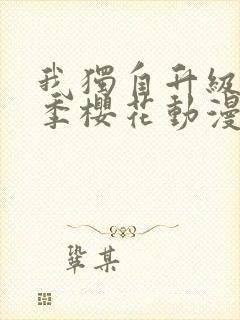 我獨自升級
季櫻花動漫
鞏某